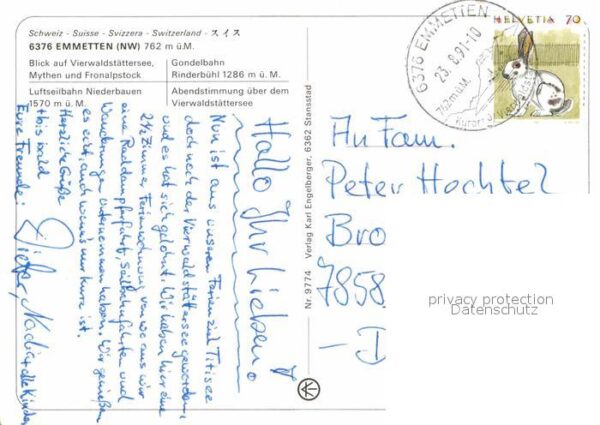 Schweiz · Suisse · Svizzera · Switzerland · スイス
6376 EMMETTEN (NW) 762 m ü.M.
Blick auf Vierwaldstättersee,
Mythen und Fronalpstock
Gondelbahn
Rinderbühl 1286 m ü. M.
Luftseilbahn Niederbauen
1570 m ü. M.
Abendstimmung über dem
Vierwaldstättersee
Hallo Ihr Lieben
Nun ist aus unseren Ferienziel Titisee
doch noch der Vierwaldstättersee geworden,
und es hat sich gelohnt. Wir haben hier eine
2½ Zimmer Ferienwohnung von wo aus wir
eine Raddampferfahrt, Seilbahnfahrten und
Wanderungen unternommen haben. Wir genießen
es echt, auch wenn's nur kurz ist.
Herzliche Grüße
+ bis bald
Eure Freunde:
Dieter, Nadia + alle Kinder
Nr. 9774 Verlag Karl Engelberger, 6362 Stansstad
6376 EMMETTEN
23.8.91-10
762 m ü.M.
Kurort
HELVETIA 70
An Fam.
Peter Hochtel
Bro
7858
- D
privacy protection
Datenschutz